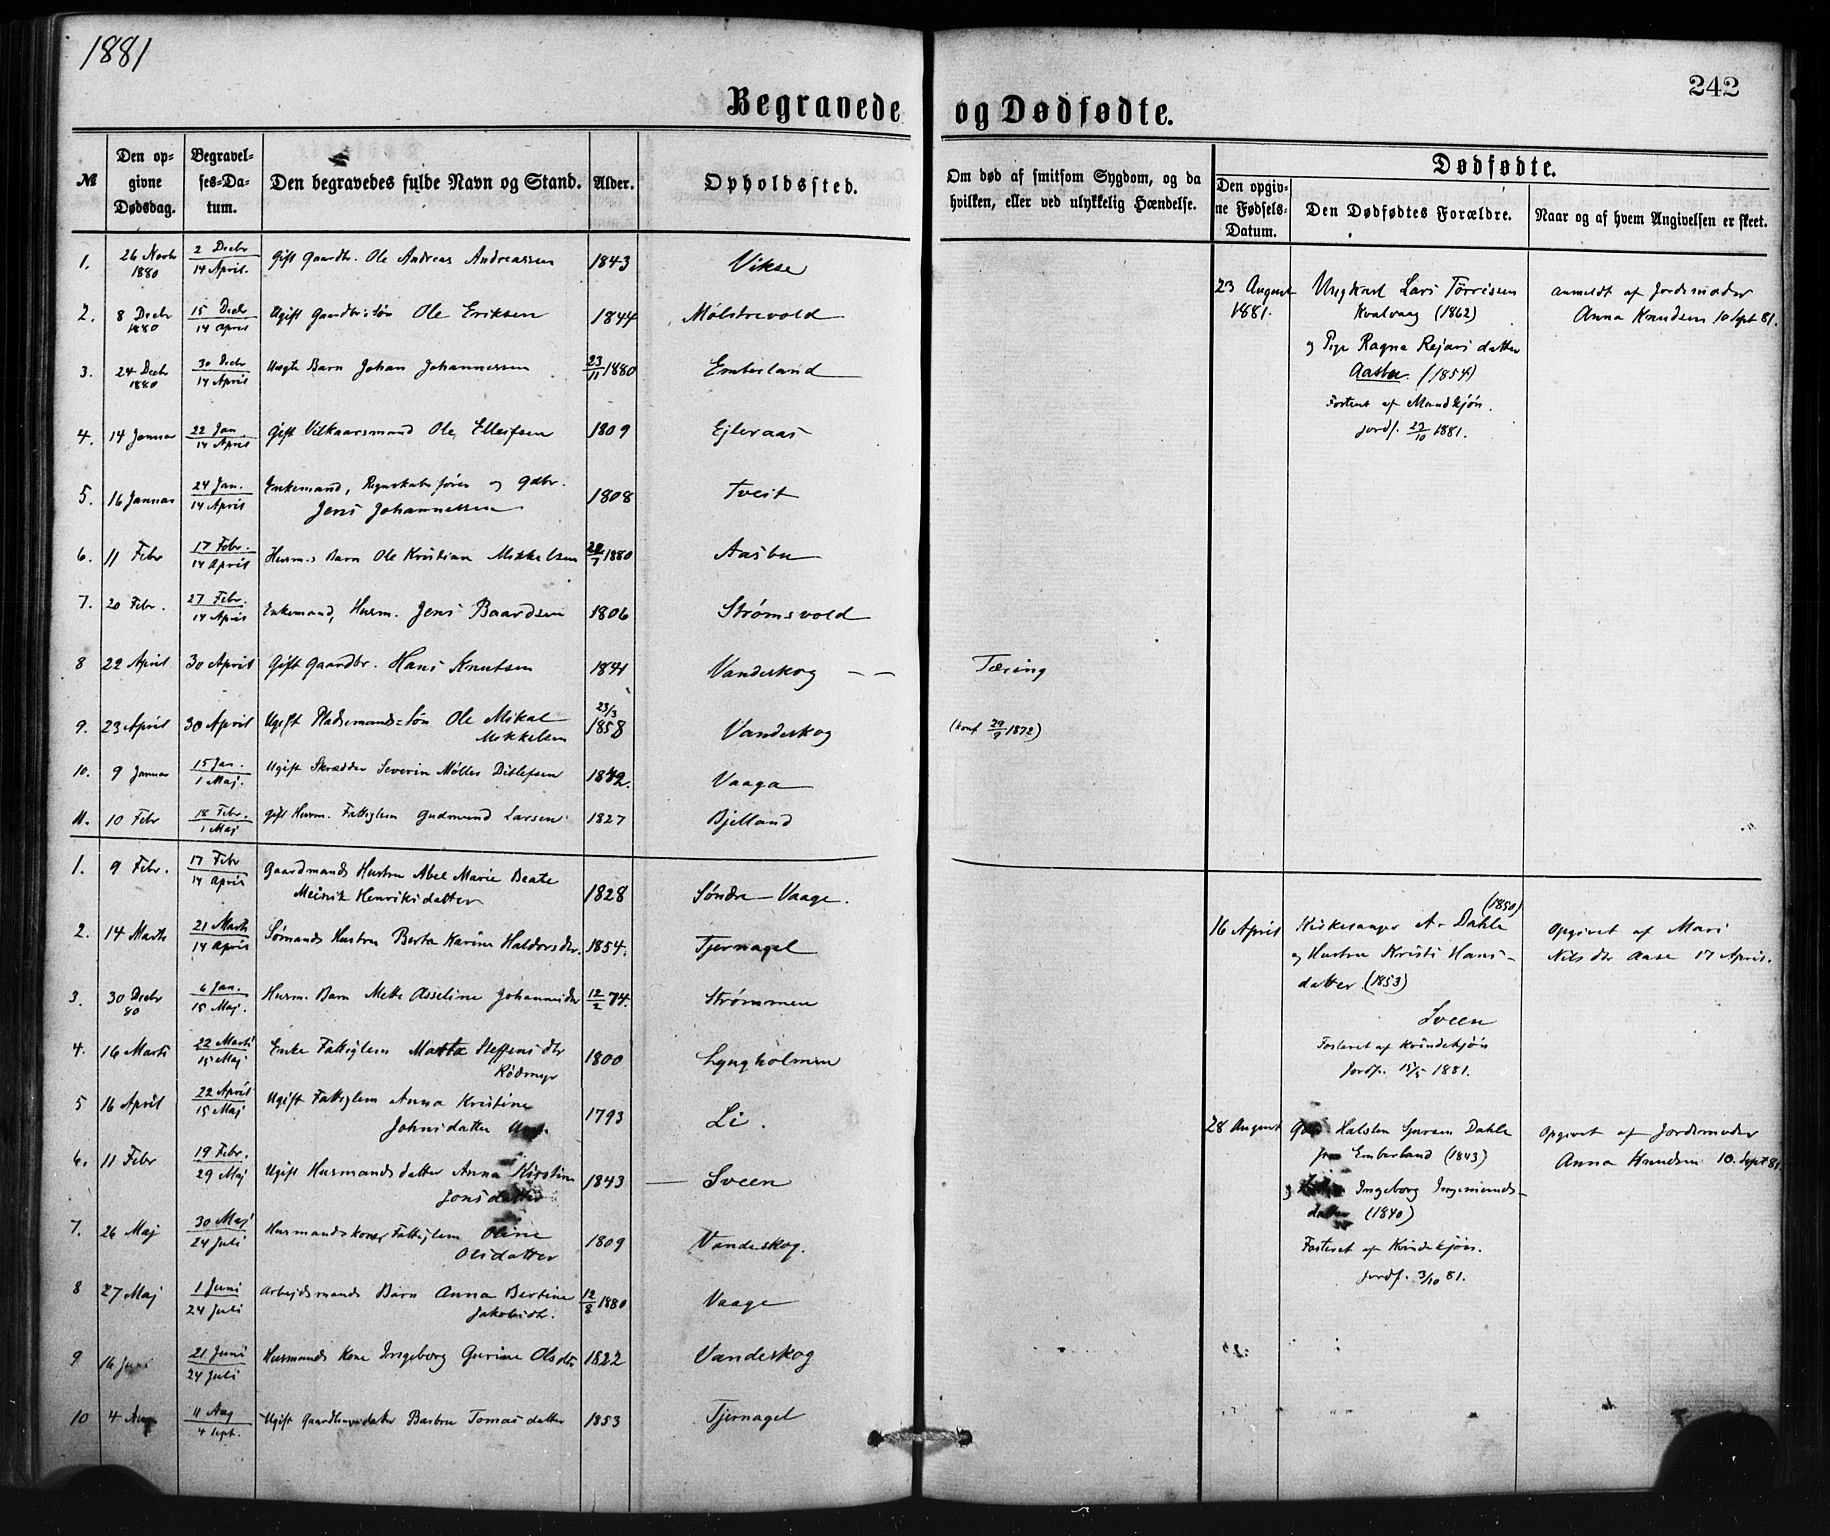 1881
242
Begravede og Dødfødte.
№
Den opgivne Dødsdag.
Begravelses-Datum.
Den begravedes fulde Navn og Stand.
Alder.
Opholdssted.
Om død af smitsom Sygdom, og da hvilken, eller ved ulykkelig Hændelse.
Dødfødte.
Den opgivne Fødsels-Datum.
Den Dødfødtes Forældre.
Naar og af hvem Angivelsen er skeet.
1. 26 Novbr 1880 2 Decbr 14 April. Gift Gaardbr. Ole Andreas Andreassen 1843 Vikse
2. 8 Decbr 1880 15 Decbr 14 April Ugift Gaardbr. Søn Ole Eriksen 1844 Mølstrevold
3. 24 Decbr 1880 30 Decbr 14 April Uægte Barn Johan Johannessen 23/11 1880 Emberland
4. 14 Januar 22 Jan 14 April Gift Vilkaarsmand Ole Ellefsen 1809 Ejleraas
5. 16 Januar 24 Jan. 14 April Enkemand, Regnskabsfører og Gdbr.
Jens Johannessen 1808 Tveit
6. 11 Febr 17 Febr. 14 April Husm. Barn Ole Kristian Mikkelsen 20/7 1880 Aasbu
7. 20 Febr. 27 Febr. 14 April Enkemand, Husm. Jens Baardsen 1806 Strømsvold
8 22 April 30 April Gift Gaardbr. Hans Knutsen 1841 Vandeskog — — Tæring
9. 23 April 30 April Ugift Pladsemands=Søn Ole Mikal
Mikkelsen 23/3 1858 Vandeskog (konf 29/9 1872)
10. 9 Januar 15 Jan. 1 Maj. Ugift Skrædder Severin Møller Ditlefsen 1842. Vaaga
11. 10 Febr 18 Febr. 1 Maj Gift Husm. Fattiglem Gudmund Larsen 1827 Bjelland
1. 9 Febr. 17 Febr 14 April Gaardmands Hustru Abel Marie Beate
Meinik Henriksdatter 1828 Søndre Vaage.
2. 14 Marts 21 Marts 14 April Sømands Hustru Berta Karine Haldorsdtr. 1854. Tjernagel
3. 30 Decbr 80 6 Jan. 15 Maj. Husm. Barn Mette Asseline Johannesdtr 12/2 74. Strømmen
4. 16 Marts 22 Marts 15 Maj Enke Fattiglem Marta Steffensdtr
Rødmyr 1800 Lyngholmen
5 16 April 22 April 15 Maj Ugift Fattiglem Anna Kristine
Johnsdatter 1793 Li.
6. 11 Febr 19 Febr. 29 Maj Ugift Husmandsdatter Anna Kirstine
Jonsdatter 1843 — Sveen
7. 26 Maj 30 Maj 24 Juli Husmandskone, Fattiglem Oline
Olsdatter 1809 Vandeskog.
8 27 Maj 1 Juni 24 Juli Arbejdsmands Barn Anna Bertine
Jakobsdtr. 12/8 1880 Vaage
9 16 Juni 21 Juni 24 Juli Husmands Kone Ingeborg Gurine Olsdtr 1822 Vandeskog
10 4 Aug 11 Aug 4 Sept. Ugift Gaardbrugerdatter Barbru Tomasdatter 1853 Tjernagel
23 August 1881.
Ungkarl Lars Tørrissen
Kvalvaag (1862)
og Pige Ragna Rejarsdatter
Aasbu. (1854)
Fosteret af Mandkjøn.
Jordf. 23/10 1881.
Anmeldt af Jordemoder
Anna Knudsen 10 Sept 81.
16 April
(1850)
Kirkesanger A. Dahle
og Hustru Kristi Hans-
datter. (1853)
Sveen
Fosteret af Kvindekjøn
Jordf. 15/5 1881.
Opgivet af Mari
Nilsdtr Aase 17 April.
28 August
Halsten Sjursen Dahle
fra Emberland (1843)
og Ingeborg Ingemunds-
datter (1840)
Fosteret af Kvindekjøn.
Jordf. 3/10 81.
Opgivet af Jordemoder
Anna Knudsen 10. Sept 81